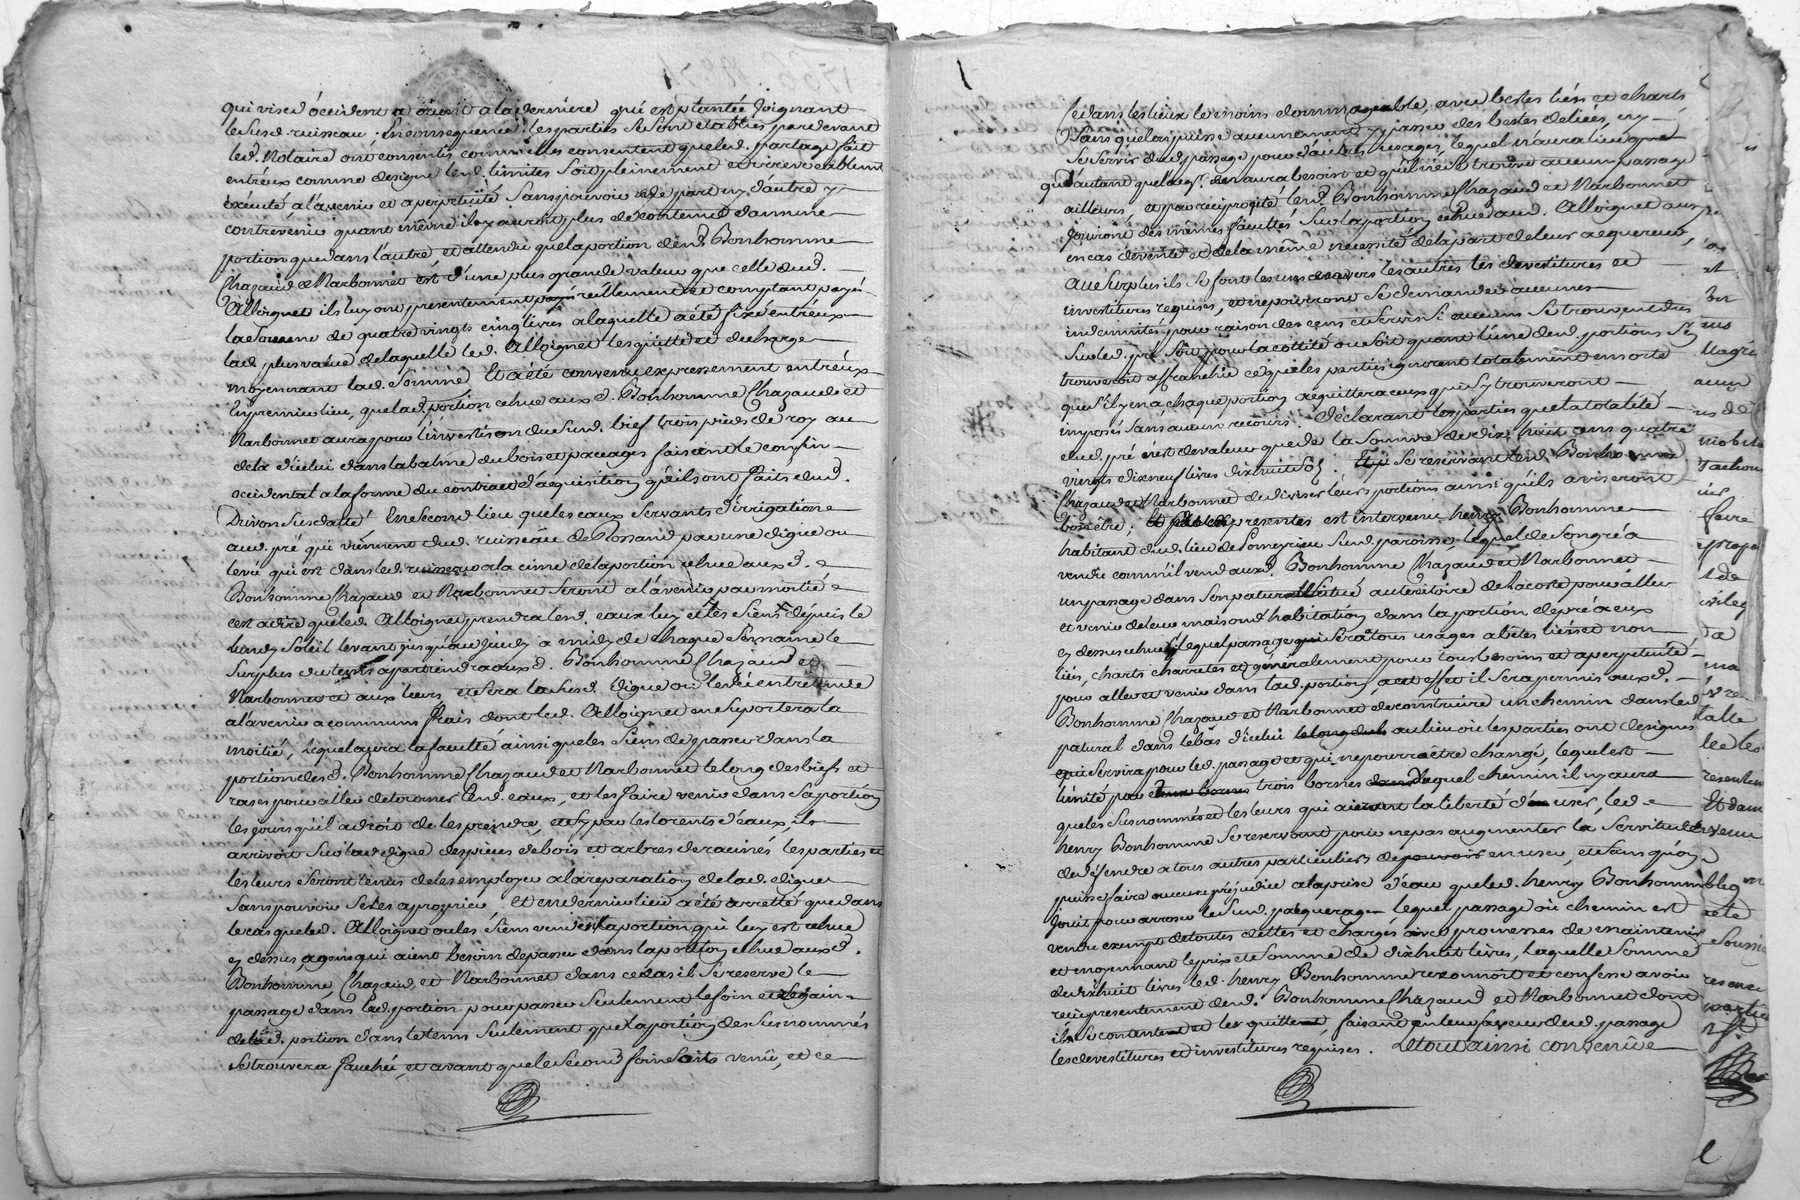 qui vise d'occident a orient a la derniere qui est plantée joignant
le susd. ruisseau; En consequence les parties se sont etablies pardevant
led. Notaire ont consentis comm'elles consentent que led. partage fait
entr'eux comme designe lesd. limites soit pleinement et irrevocablement
executé a l'avenir et a perpetuité sans pouvoir de part ny d'autre y
contrevenir quant même il y auroit plus de contenu dans une
portion que dans l'autre, et attendu que la portion desd. Bonhomme
Chazaud et Narbonnet est d'une plus grande valeur que celle dud.
Alloignet ils luy ont presentement payé réellement et comptant
la somme de quatre vingts cinq livres a laquelle a été fixé entr'eux
lad. plus value de laquelle led. Alloignet les quitte et decharge
moyennant lad. somme Et a été convenu expressement entr'eux
En premier lieu, que lad. portion echue auxd. Bonhomme Chazaud et
Narbonnet aura pour dud. bief trois pieds de roy au
dela d'icelui dans la balme du bois et pacages faisant le confin
occidental a la forme du contract d'acquisition qu'ils ont faits dud.
Drivon susdatté En second lieu que les eaux servants d'irrigation
aud. pré qui viennent dud. ruisseau de Rossand par une digue ou
levée qui est dans led. ruisseau a la cime de la portion echue auxd.
Bonhomme Chazaud et Narbonnet seront a l'avenir par moitié
c'est a dire que led. Alloignet prendra lesd. eaux luy et les siens depuis le
lundy soleil levant jusqu'au jeudy a midy de chaque semaine le
surplus du tems apartiendra auxd. Bonhomme Chazaud et
Narbonnet et aux leurs, et sera lad. digue ou levée entretenue
a l'avenir a communs frais dont led. Alloignet en suportera la
moitié, lequel aura la faculté ainsi que les siens de passer dans la
portion desd. Bonhomme Chazaud et Narbonnet le long des biefs et
rases pour aller detourner lesd. eaux, et les faire venir dans sa portion
les jours qu'il a droit de les prendre, et sy par les torents d'eaux, ils
arrivoit sur lad. digue des pieces de bois et arbres deracinés les parties et
les leurs seront tenus de les employer a la reparation de lad. digue
sans pouvoir se les aproprier Et en dernier lieu a été arretté que dans
le cas que led. Alloignet ou les siens vende la portion qui luy est echue
cy dessus, a gens qui aient besoin de passer dans la portion echue auxd.
Bonhomme, Chazaud et Narbonnet dans ce cas il se reserve le
passage dans lad. portion pour passer seulement le foin et regain
de lad. portion dans le tems seulement que la portion des susnommés
se trouvera fauchée, et avant que le second foin soit venu, et ce
Ce dans les lieux le moins dommageable, avec bestes liées et charts
sans que l'on puisse aucunement y passer des bestes deliées, ny
se servir dud. passage pour d'autres usages, lequel n'aura lieu que
qu'autant que l'aqr. en aura besoin et qu'il ne se trouve aucun passage
ailleurs, et par reciprocité lesd. Bonhomme Chazaud et Narbonnet
jouiront des mêmes facultés sur la portion echue aud. Alloignet aux
en cas de vente et de la même necessité de la part de leur acquereur,
Au surplus ils se font les uns envers les autres les devestitures et
investitures requises, et ne pourront se demander aucunes
indemnités pour raison des cens et servis si aucuns se trouvent dus
sur led. pré soit pour la cottité ou soit quant l'une desd. portions se
trouveroit affranchie ce que les parties ignorent totalement en sorte
que s'il y en a chaque portion acquittera ceux qui s'y trouveront
imposés sans aucun recours. Déclarant les parties que la totalité
dud. pré n'est de valeur que de la somme de dix huit cens quatre
vingts dix neuf livres dix huit sols. se reservant lesd. Bonhomme
Chazaud et Narbonnet de diviser leurs portions ainsi qu'ils aviseront
bon être; presentes est intervenu henry Bonhomme
habitant dud. lieu de Someyrieu susd. paroisse, lequel de son gré a
vendu comm'il vend auxd. Bonhomme Chazaud et Narbonnet
un passage dans son patural situé au teritoire de Lacoste pour aller
et venir de leur maison d'habitation dans la portion de pré a eux
cy dessus echue lequel passage sera a tous usages a bêtes liées et non
liées, charts charretes et generalement pour tous besoins et a perpetuité
pour aller et venir dans lad. portion, a cet effet il sera permis auxd.
Bonhomme Chazaud et Narbonnet de construire un chemin dans led.
patural dans le bas d'icelui au lieu où les parties ont designés
qui servira pour led. passage et qui ne pourra être changé, lequel est
limité par trois bornes duquel chemin il n'y aura
que les susnommés et les leurs qui aient la liberté d'en user, led.
henry Bonhomme se reservant pour ne pas augmenter la servitude
de deffendre a tous autres particuliers de pouvoir en user, et sans qu'on
puisse faire aucune préjudice a la prise d'eau que led. henry Bonhomme
jouit pour arroser le susd. paquerage lequel passage ou chemin est
vendu exempt de toutes dettes et charges avec promesses de maintenir
et moyennant le prix et somme de dixhuit livres, laquelle somme
de dixhuit livres led. henry Bonhomme reconnoit et confesse avoir
reçu presentement desd. Bonhomme Chazaud et Narbonnet dont
il se contente et les quitte, faisant en leur faveur dud. passage
les devestitures et investitures requises. Le tout ainsi convenüe